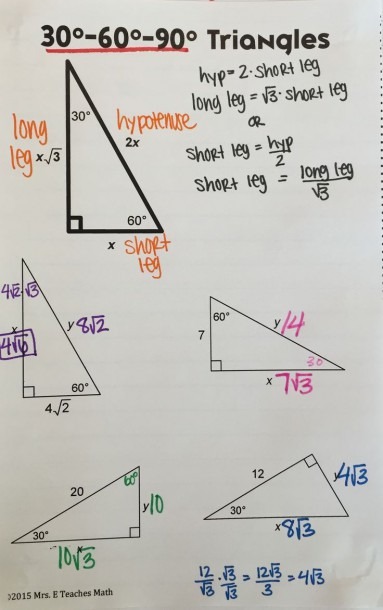 30°-60°-90° Triangles
hyp = 2·short leg
long leg = √3·short leg
OR
short leg = hyp/2
short leg = long leg/√3
30°
long leg
x√3
hypotenuse
2x
60°
x
short leg
4√2·√3
x
4√6
y 8√2
60°
4√2
60°
7
y 14
30
x 7√3
20
60°
y 10
30°
x
10√3
12
y 4√3
30°
x 8√3
12/√3 · √3/√3 = 12√3/3 = 4√3
©2015 Mrs. E Teaches Math